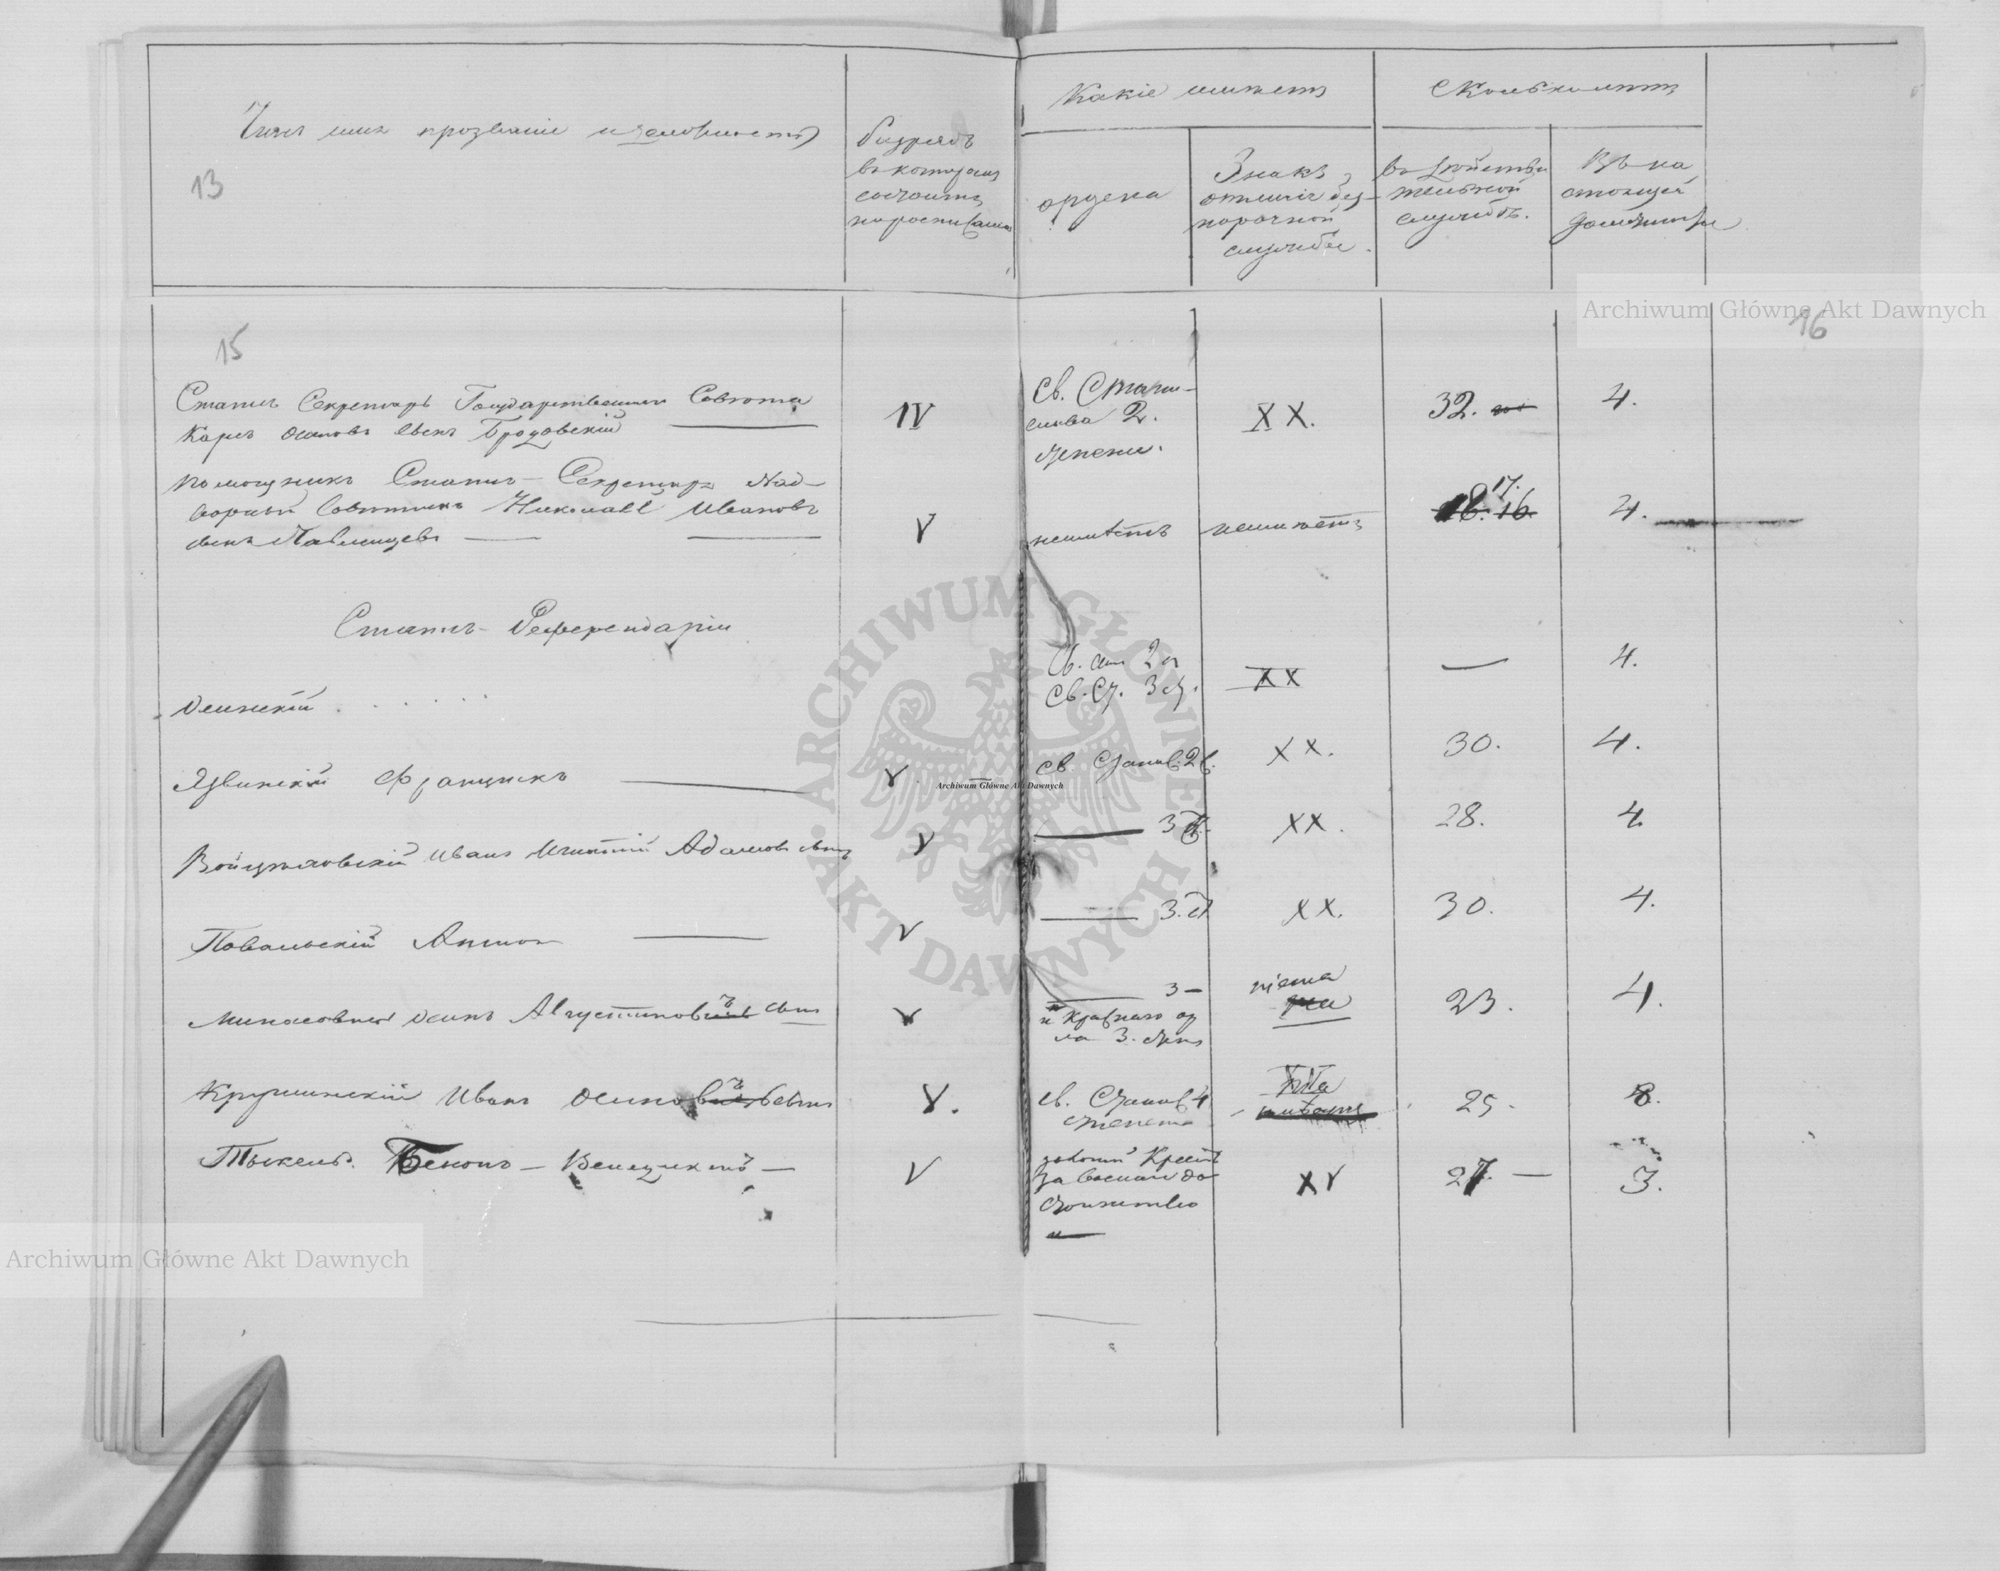 Чинъ имя прозваніе и должность
13
Разрядъ
въ которомъ
состоитъ
по росписанію
Какіе имѣетъ
ордена
Знакъ
отличія без-
порочной
службы.
Сколько лѣтъ
въ дѣйстви
тельной
службѣ.
въ на
стоящей
должности
15
16
Статсъ Секретарь Государственнаго Совѣта
Карлъ Осиповъ сынъ Бродовскій
IV
Св. Стани-
слава 2.
степени.
XX.
32.
4.
Помощникъ Статсъ-Секретаря Над-
ворный Совѣтникъ Николай Ивановъ
сынъ Павлищевъ
V
неимѣетъ
неимѣетъ
17.
18. 16
4.
Статсъ-Референдаріи
Осинскій . . . . .
Св. Ст. 3 ст.
XX
—
4.
Язвинскій Францискъ
V
св. Станис. 2 ст.
XX.
30.
4.
Войцѣховскій Иванъ Игнатій Адамовъ сынъ
V
3 ст.
XX.
28.
4.
Повальскій Антонъ
V
3. ст
XX.
30.
4.
Осипъ Августиновъ сынъ
V
3 —
и Краснаго ор
ла 3. степ
niema
23.
4.
Крушинскій Иванъ Осиповъ сынъ
V.
св. Станис 4
степени
25.
8.
Тыкель. Бенонъ — Венедиктъ —
V
золотый Крестъ
за военное до
стоинство
XV
27. —
3.
Archiwum Główne Akt Dawnych
Archiwum Główne Akt Dawnych
Archiwum Główne Akt Dawnych
ARCHIWUM GŁÓWNE AKT DAWNYCH